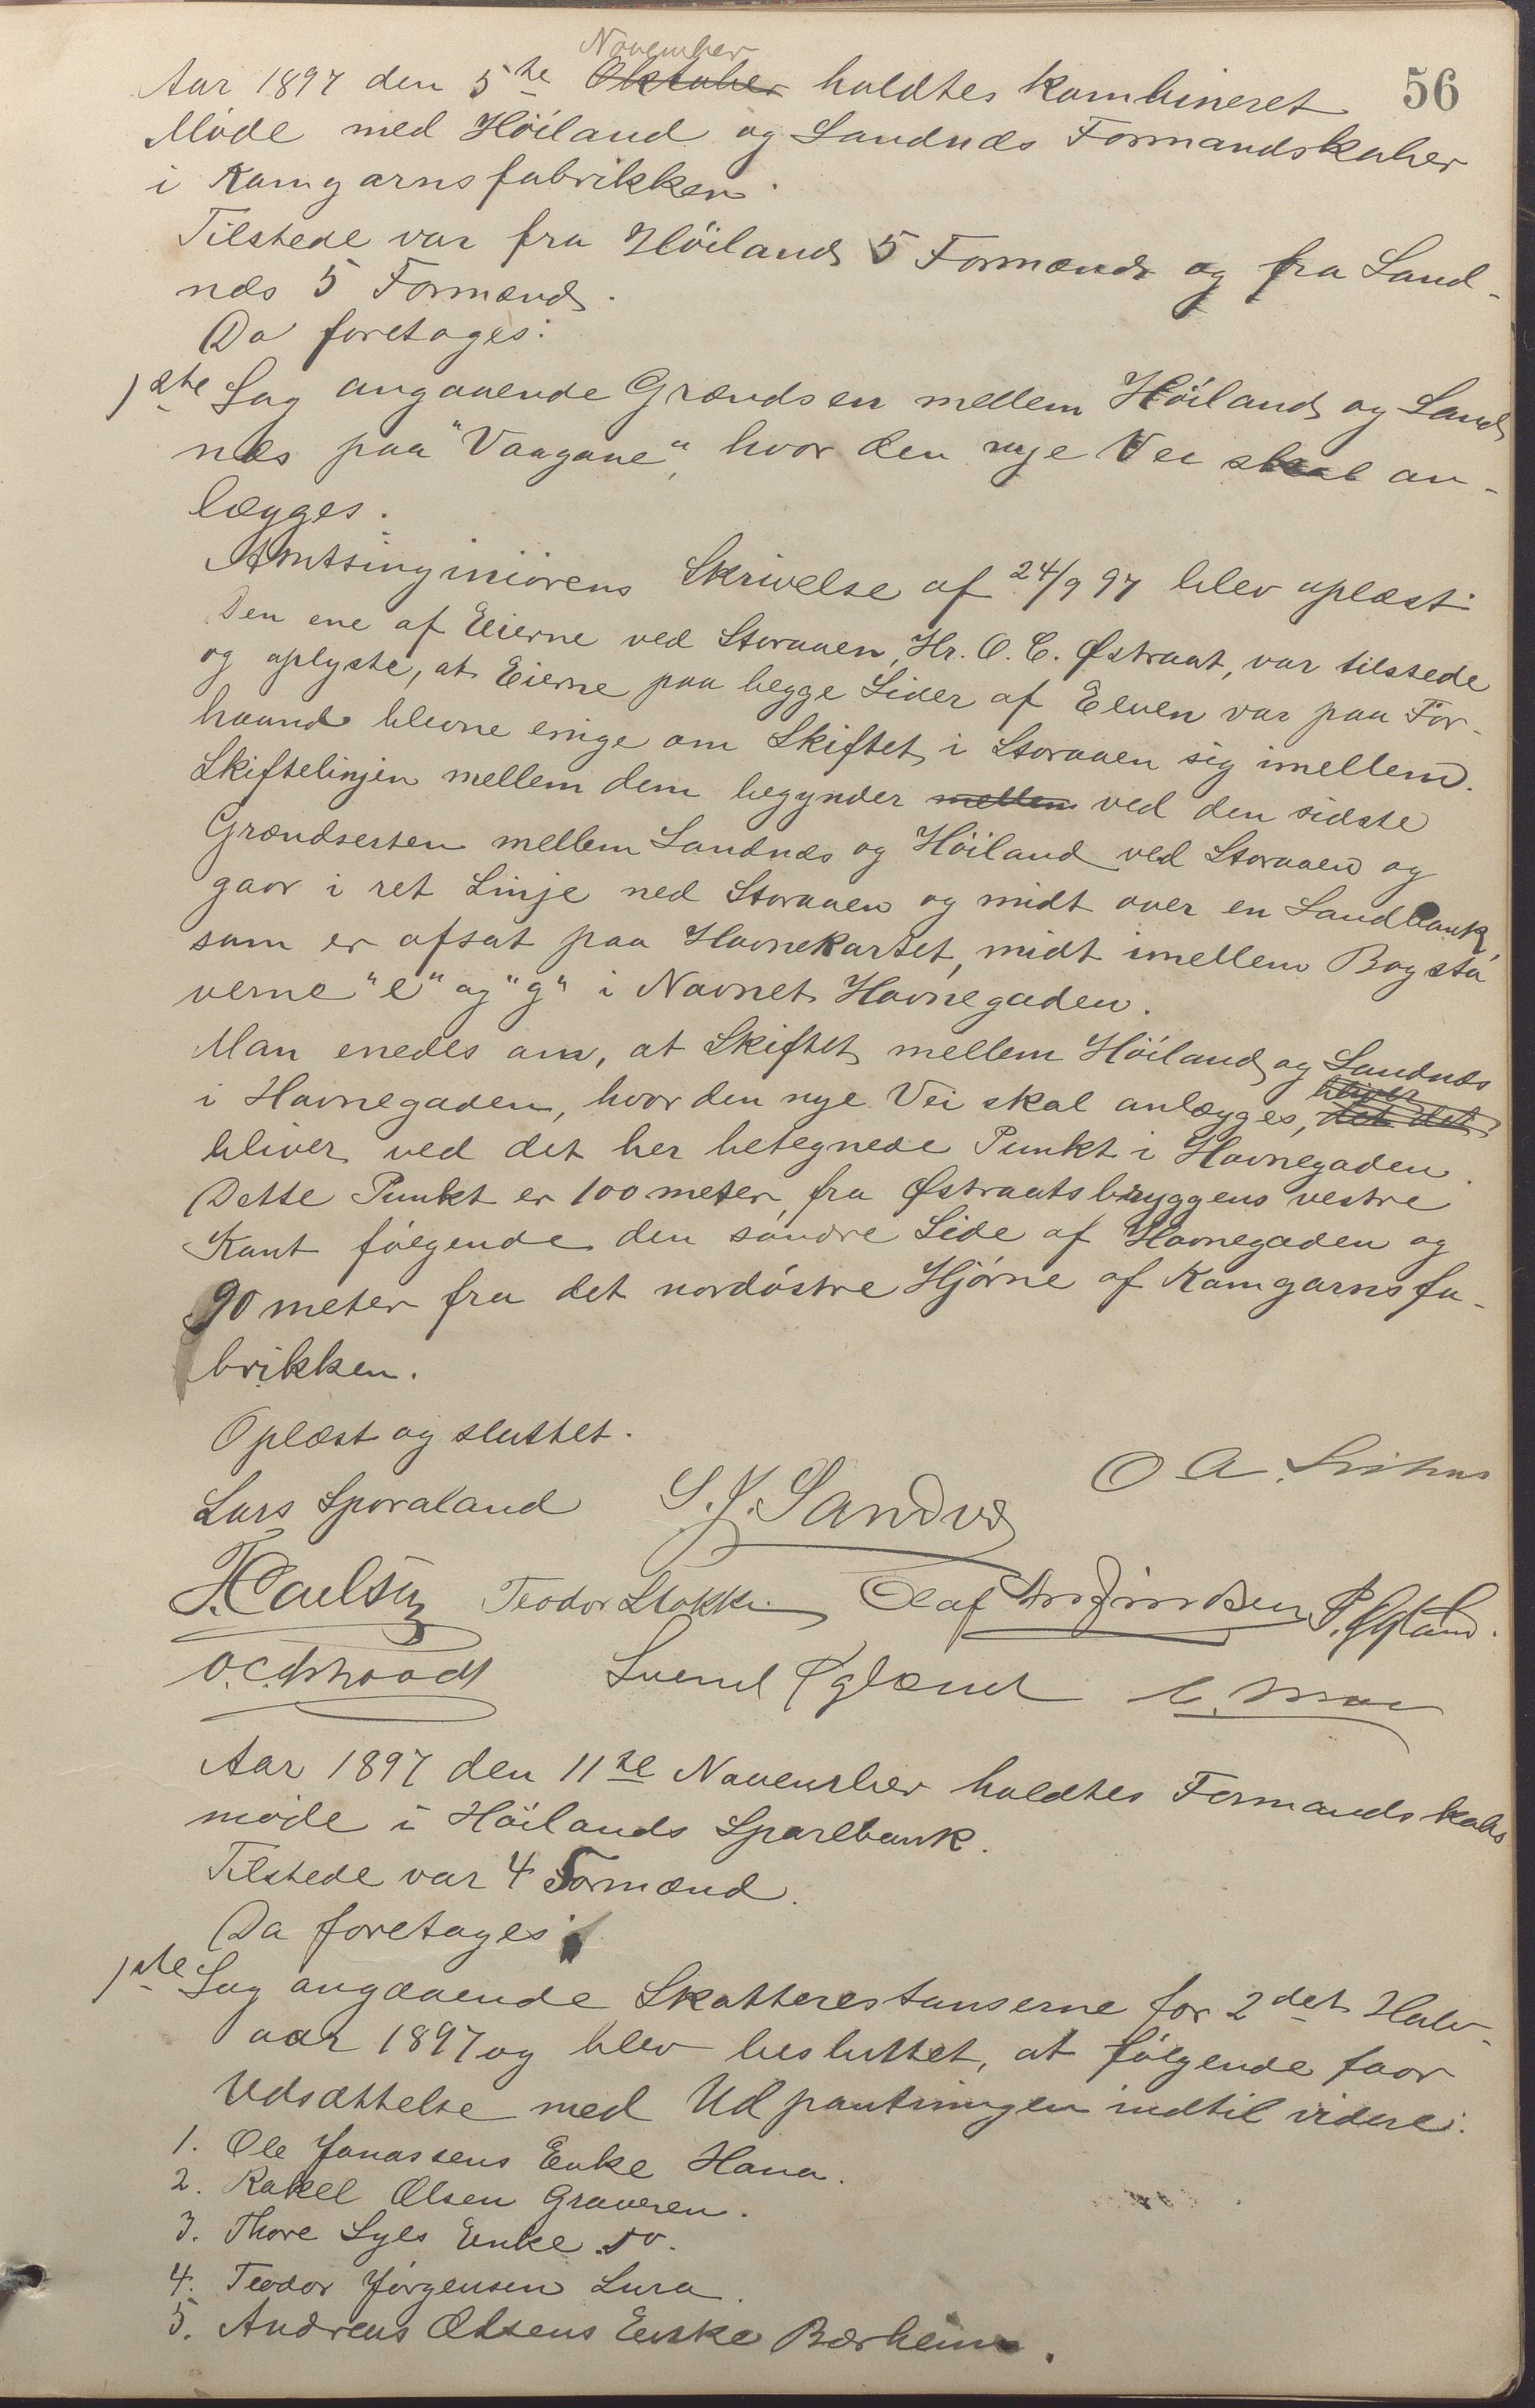 56
November
Aar 1897 den 5te Oktober holdtes kombineret
Møde med Höiland og Sandnæs Formandskaber
i Kamgarnsfabrikken.
Tilstede var fra Höiland 5 Formænd og fra Sand-
næs 5 Formænd.
Da foretoges:
1ste Sag angaaende Grændsen mellem Höiland og Sand
næs paa "Vaagane", hvor den nye Vei skal an-
lægges.
Amtsinginiörens Skrivelse af 24/9 97 blev oplæst.
Den ene af Eierne ved Storaaen, Hr. O. C. Østraat, var tilstede
og oplyste, at Eierne paa begge Sider af Elven var paa For-
haand blevne enige om Skiftet i Storaaen sig imellem.
Skiftelinjen mellem dem begynder mellem ved den sidste
Grændsesten mellem Sandnæs og Höiland ved Storaaen og
gaar i ret Linje ned Storaaen og midt over en Sandbank
som er afsat paa Havnekartet, midt imellem Bogsta
verne "e" og "g" i Navnet Havnegaden.
Man enedes om, at Skiftet mellem Höiland og Sandnæs
i Havnegaden, hvor den nye Vei skal anlægges, bliver det det
bliver ved det her betegnede Punkt i Havnegaden.
Dette Punkt er 100 meter fra Østraatsbryggens vestre
Kant følgende den søndre Side af Havnegaden og
90 meter fra det nordøstre Hjørne af Kamgarnsfa-
brikken.
Oplæst og sluttet.
Lars Sporaland S. J. Sandved O A
T. Paulsen Teodor Stokke Olaf P.
O. C. Svend
Aar 1897 den 11te November holdtes Formandskabs
møde i Höilands Sparebank.
Tilstede var 4 Formænd.
Da foretoges:
1ste Sag angaaende Skatterestanserne for 2det Halv-
aar 1897 og blev besluttet, at følgende faar
Udsættelse med Udpantningen indtil videre:
1. Ole Jonassens Enke Hana.
2. Rakel Olsen Graveren.
3. Thore Lyes Enke do.
4. Teodor Jörgensen Lura.
5. Andreas Olsens Enke Bærheim.